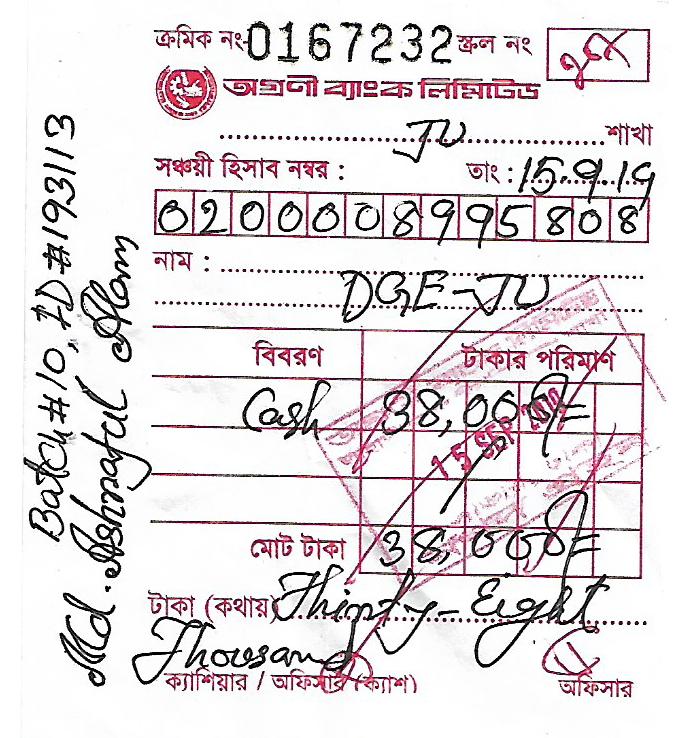 ক্রমিক নং-0167232 স্ক্রল নং
অগ্রণী ব্যাংক লিমিটেড
JU শাখা
সঞ্চয়ী হিসাব নম্বর : তাং : 15.9.19
0200008995808
নাম :
DGE-JU
বিবরণ টাকার পরিমাণ
Cash 38,000/=
15 SEP
মোট টাকা 38,000/=
টাকা (কথায়) Thirty-Eight
Thousand
ক্যাশিয়ার / অফিসার (ক্যাশ) অফিসার
Batch # 10, ID # 193113
Md. Ashraful Alam